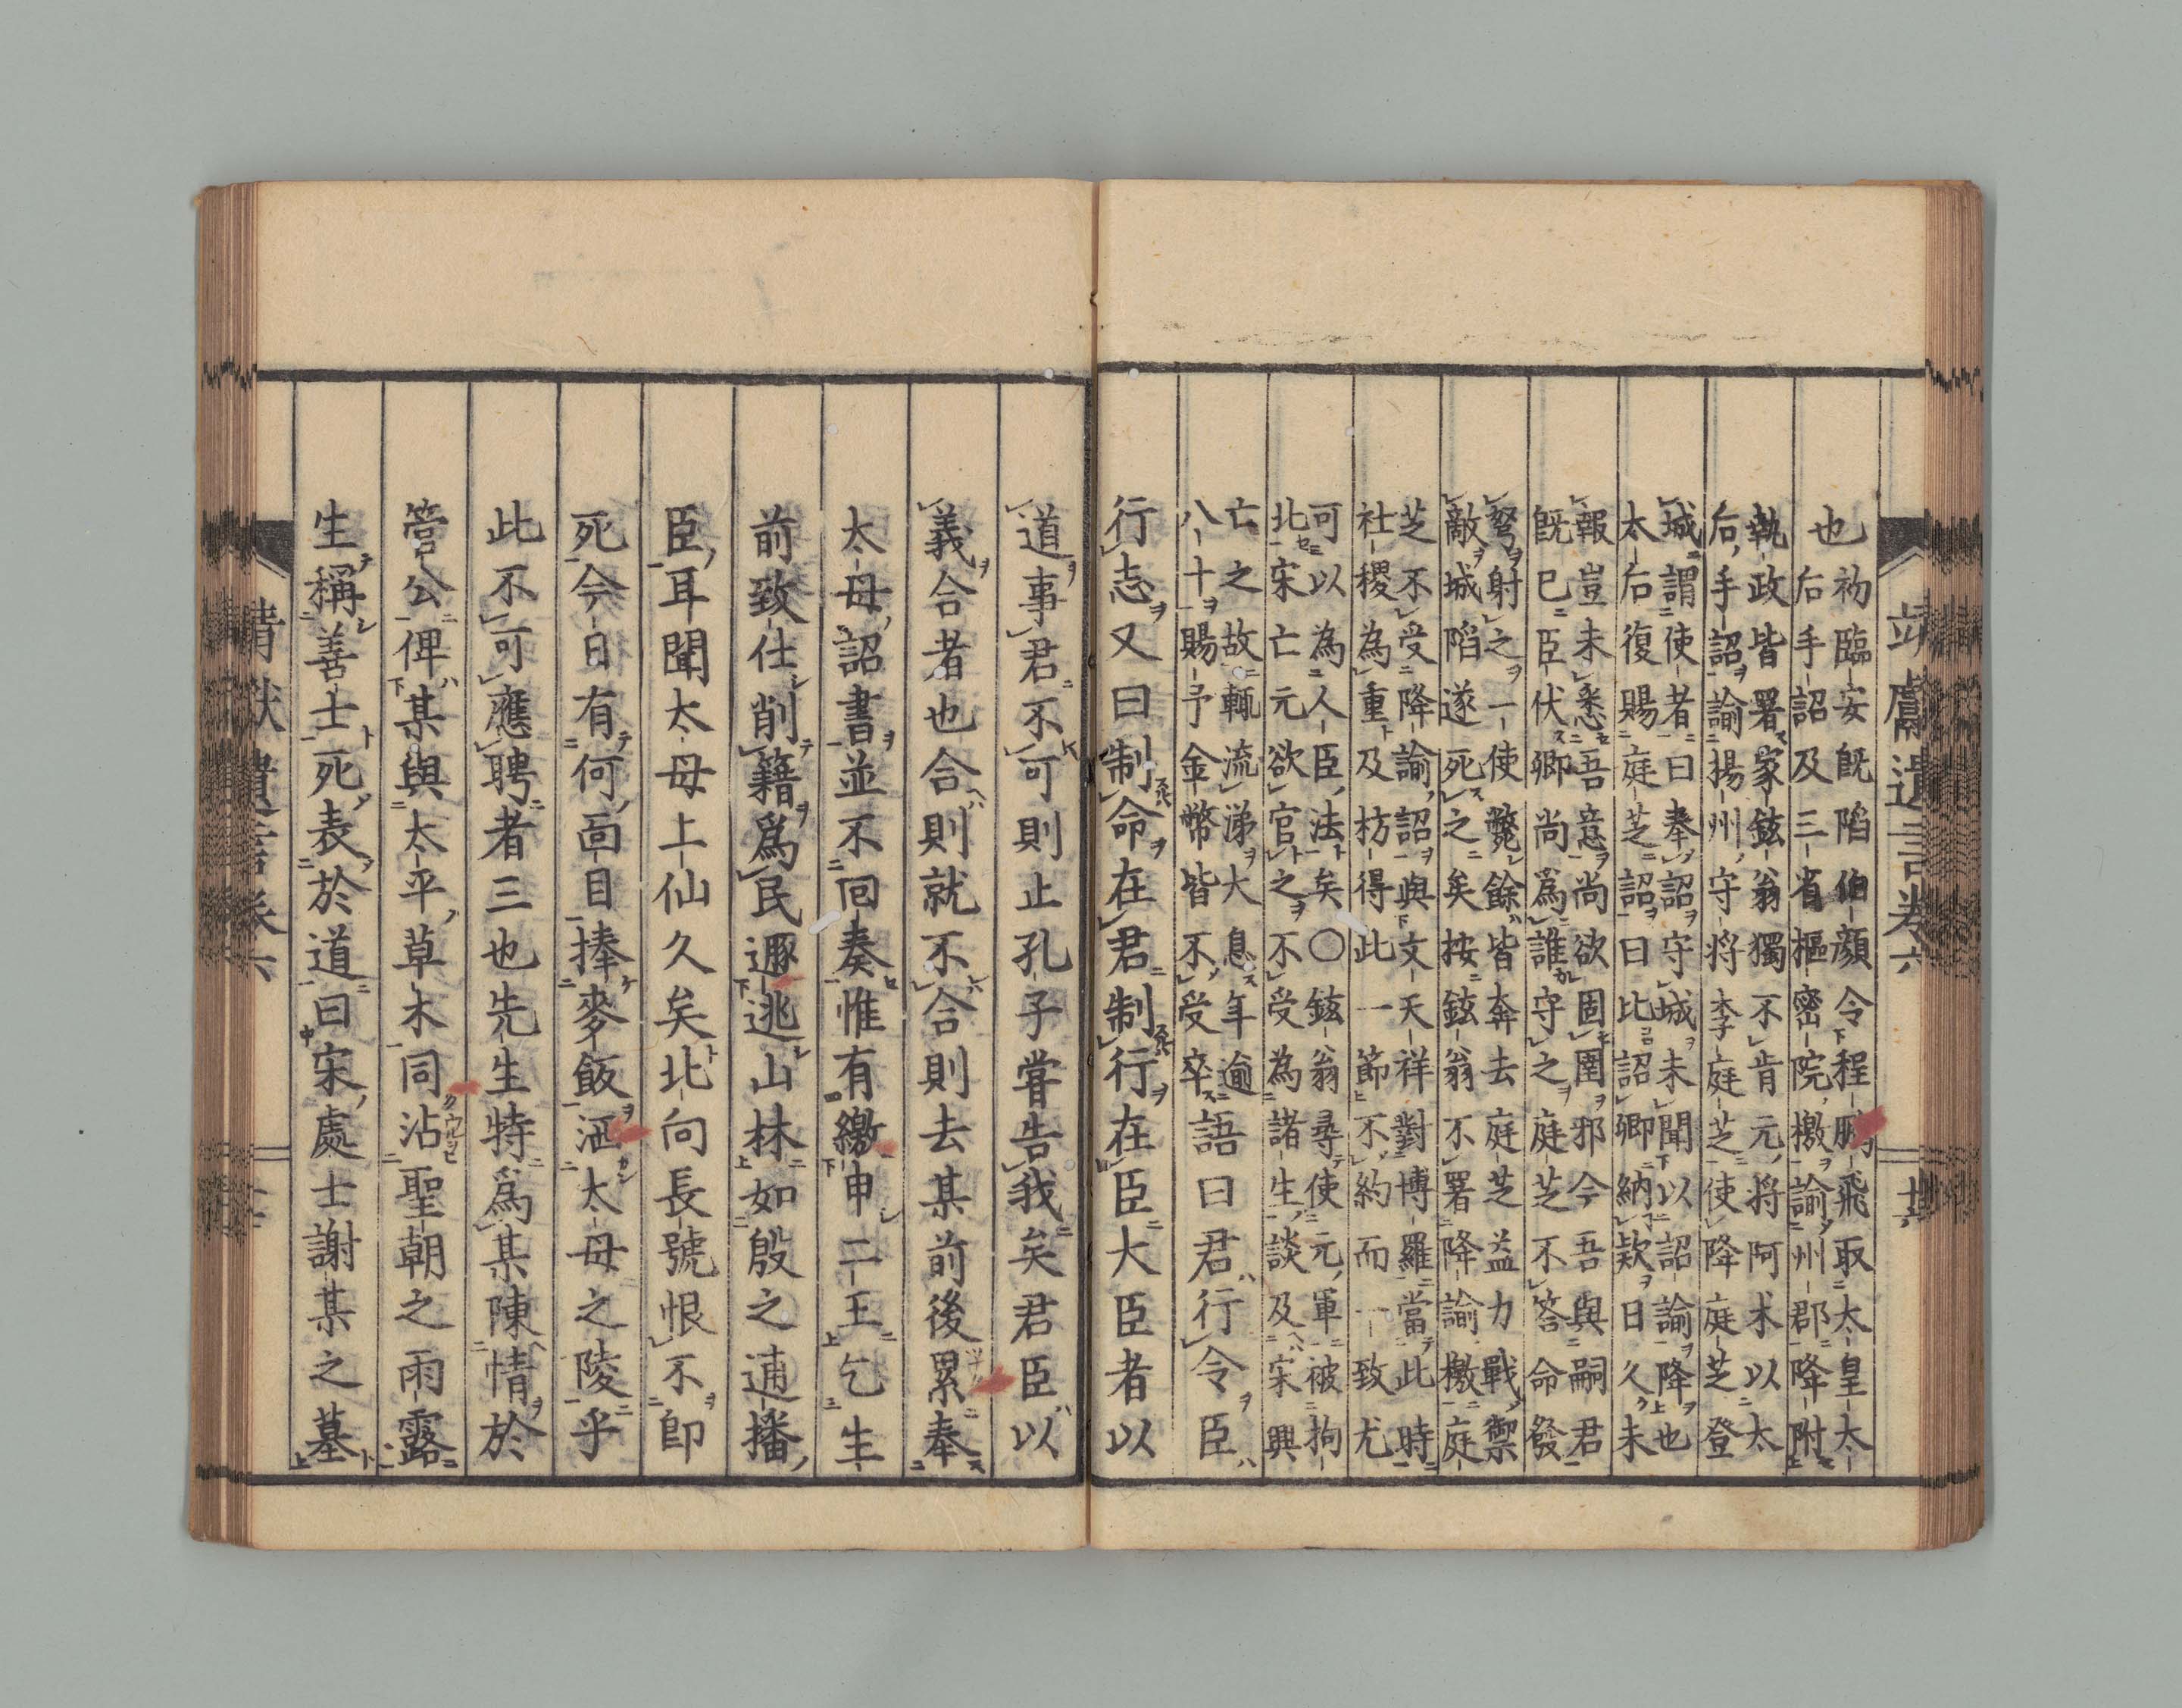 靖獻遺言卷六
十六
也
初臨安既陷伯顏令程鵬飛取太皇太
后手詔及三省樞密院檄諭州郡降附
執政皆署家鉉翁獨不肯元將阿朮以太
后手詔諭揚州守將李庭芝使降庭芝登
城謂使者曰奉詔守城未聞以詔諭降也
太后復賜庭芝詔曰比詔卿納款日久未
報豈未悉吾意尚欲固圉邪今吾與嗣君
既已臣伏卿尚爲誰守之庭芝不答命發
弩射之一使斃餘皆奔去庭芝益力戰禦
敵城陷遂死之矣按鉉翁不署降諭檄庭
芝不受降諭詔與文天祥對博羅當此時
社稷為重及枋得此一節不約而一致尤
可以為人臣法矣○鉉翁尋使元軍被拘
北宋亡元欲官之不受為諸生談及宋興
亡之故輒流涕大息年逾
八十賜予金幣皆不受卒
語曰君行令臣
行志又曰制命在君制行在臣大臣者以
道事君不可則止孔子嘗告我矣君臣以
義合者也合則就不合則去某前後累奉
太母詔書並不回奏惟有繳申二王乞生
前致仕削籍爲民遯逃山林如殷之逋播
臣耳聞太母上仙久矣北向長號恨不即
死今日有何面目捧麥飯洒太母之陵乎
此不可應聘者三也先生特爲某陳情於
管公俾某與太平草木同沾聖朝之雨露
生稱善士死表於道曰宋處士謝某之墓
靖獻遺言卷六